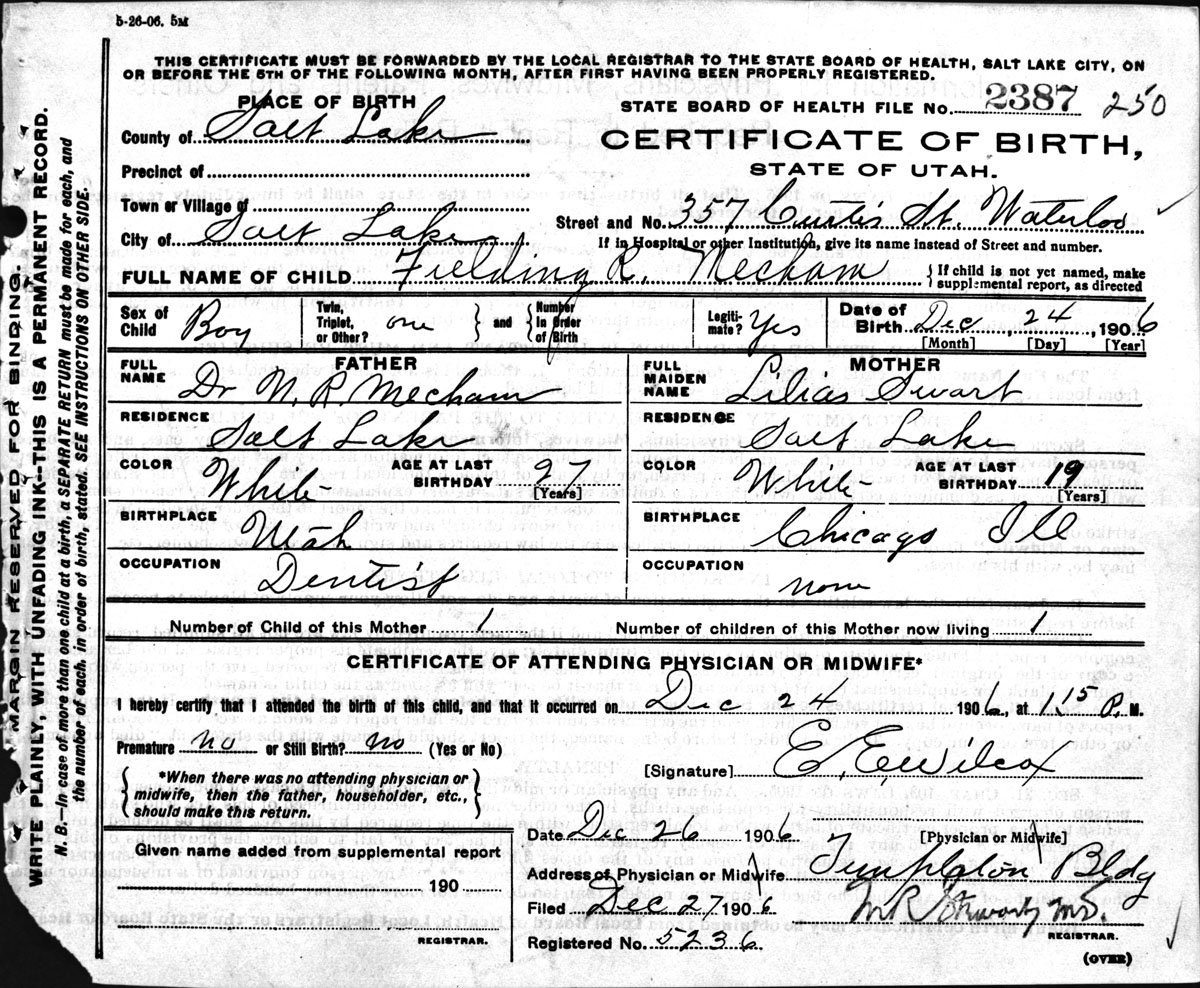 5-26-06. 5M
THIS CERTIFICATE MUST BE FORWARDED BY THE LOCAL REGISTRAR TO THE STATE BOARD OF HEALTH, SALT LAKE CITY, ON
OR BEFORE THE 5TH OF THE FOLLOWING MONTH, AFTER FIRST HAVING BEEN PROPERLY REGISTERED.
PLACE OF BIRTH
STATE BOARD OF HEALTH FILE No. 2387 250
County of Salt Lake
CERTIFICATE OF BIRTH,
STATE OF UTAH.
Precinct of
Town or Village of
Street and No. 357 Curtis St. Waterloo
City of Salt Lake
If in Hospital or other Institution, give its name instead of Street and number.
FULL NAME OF CHILD Fielding R. Mecham
{If child is not yet named, make
supplemental report, as directed
Sex of Child Boy
Twin, Triplet, or Other? one
} and { Number in Order of Birth
Legiti-mate? Yes
Date of Birth Dec 24, 1906
[Month] [Day] [Year]
FATHER
FULL NAME Dr W. R. Mecham
RESIDENCE Salt Lake
COLOR White
AGE AT LAST BIRTHDAY 27
[Years]
BIRTHPLACE Utah
OCCUPATION Dentist
MOTHER
FULL MAIDEN NAME Lilias Swart
RESIDENCE Salt Lake
COLOR White
AGE AT LAST BIRTHDAY 19
[Years]
BIRTHPLACE Chicago Ill
OCCUPATION none
Number of Child of this Mother 1
Number of children of this Mother now living 1
CERTIFICATE OF ATTENDING PHYSICIAN OR MIDWIFE*
I hereby certify that I attended the birth of this child, and that it occurred on Dec 24 1906, at 115 P. M.
Premature no or Still Birth? no (Yes or No)
{*When there was no attending physician or
midwife, then the father, householder, etc.,
should make this return.}
[Signature] E. E. Wilcox
[Physician or Midwife]
Date Dec 26 1906
Address of Physician or Midwife Templeton Bldg
Filed Dec 27 1906
M R Stewart M.D.
REGISTRAR.
Registered No. 5236
(OVER)
Given name added from supplemental report
190
REGISTRAR.
MARGIN RESERVED FOR BINDING
WRITE PLAINLY, WITH UNFADING INK—THIS IS A PERMANENT RECORD.
N. B.—In case of more than one child at a birth, a SEPARATE RETURN must be made for each, and
the number of each, in order of birth, stated. SEE INSTRUCTIONS ON OTHER SIDE.